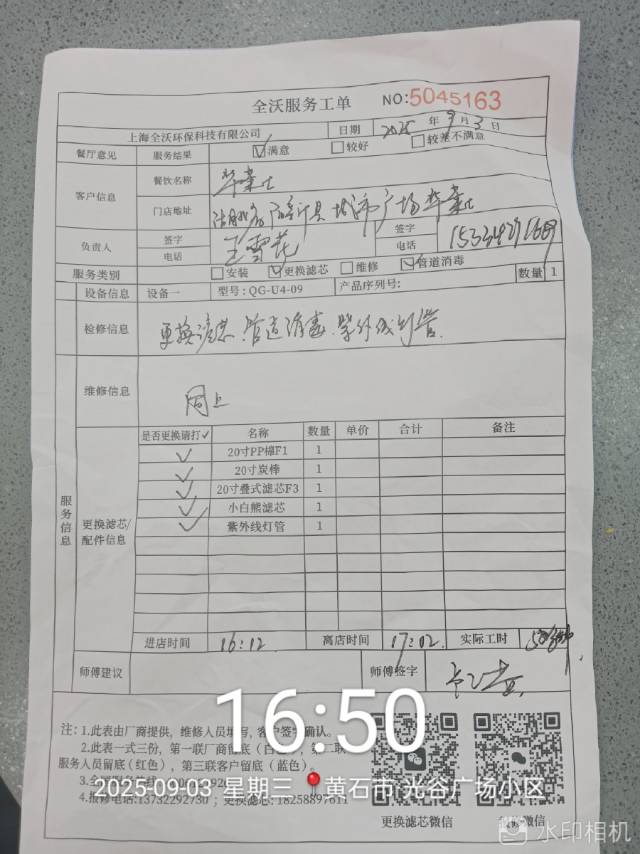 全沃服务工单 NO:5045163
上海全沃环保科技有限公司 日期 2025 年 9 月 3 日
餐厅意见 服务结果 满意 较好 较差不满意
客户信息 餐饮名称 华莱士
门店地址 城市广场华莱士
负责人 签字 王雪花 签字
电话 电话
服务类别 安装 更换滤芯 维修 管道消毒 数量 1
设备信息 设备一 型号:QG-U4-09 产品序列号:
检修信息 更换滤芯.管道消毒.紫外线灯管.
维修信息 同上
服务信息
更换滤芯/配件信息
是否更换请打✓ 名称 数量 单价 合计 备注
✓ 20寸PP棉F1 1
✓ 20寸炭棒 1
✓ 20寸叠式滤芯F3 1
✓ 小白熊滤芯 1
✓ 紫外线灯管 1
进店时间 16:12 离店时间 17:02 实际工时
师傅建议 师傅签字
16:50
注: 1.此表由厂商提供, 维修人员填写, 客户签字确认。
2.此表一式三份, 第一联厂商留底
服务人员留底(红色), 第三联客户留底(蓝色)。
2025-09-03 星期三 黄石市·光谷广场小区
4.报修电话:13732292730 ; 更换滤芯: 18258897611
更换滤芯微信 微信
水印相机